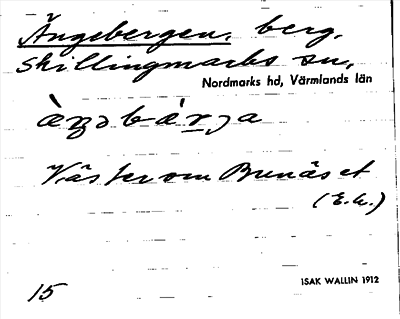 Ängebergen, berg,
Skillingmarks sn,
Nordmarks hd, Värmlands län
Väster om Brunäset
(E.k.)
15
ISAK WALLIN 1912